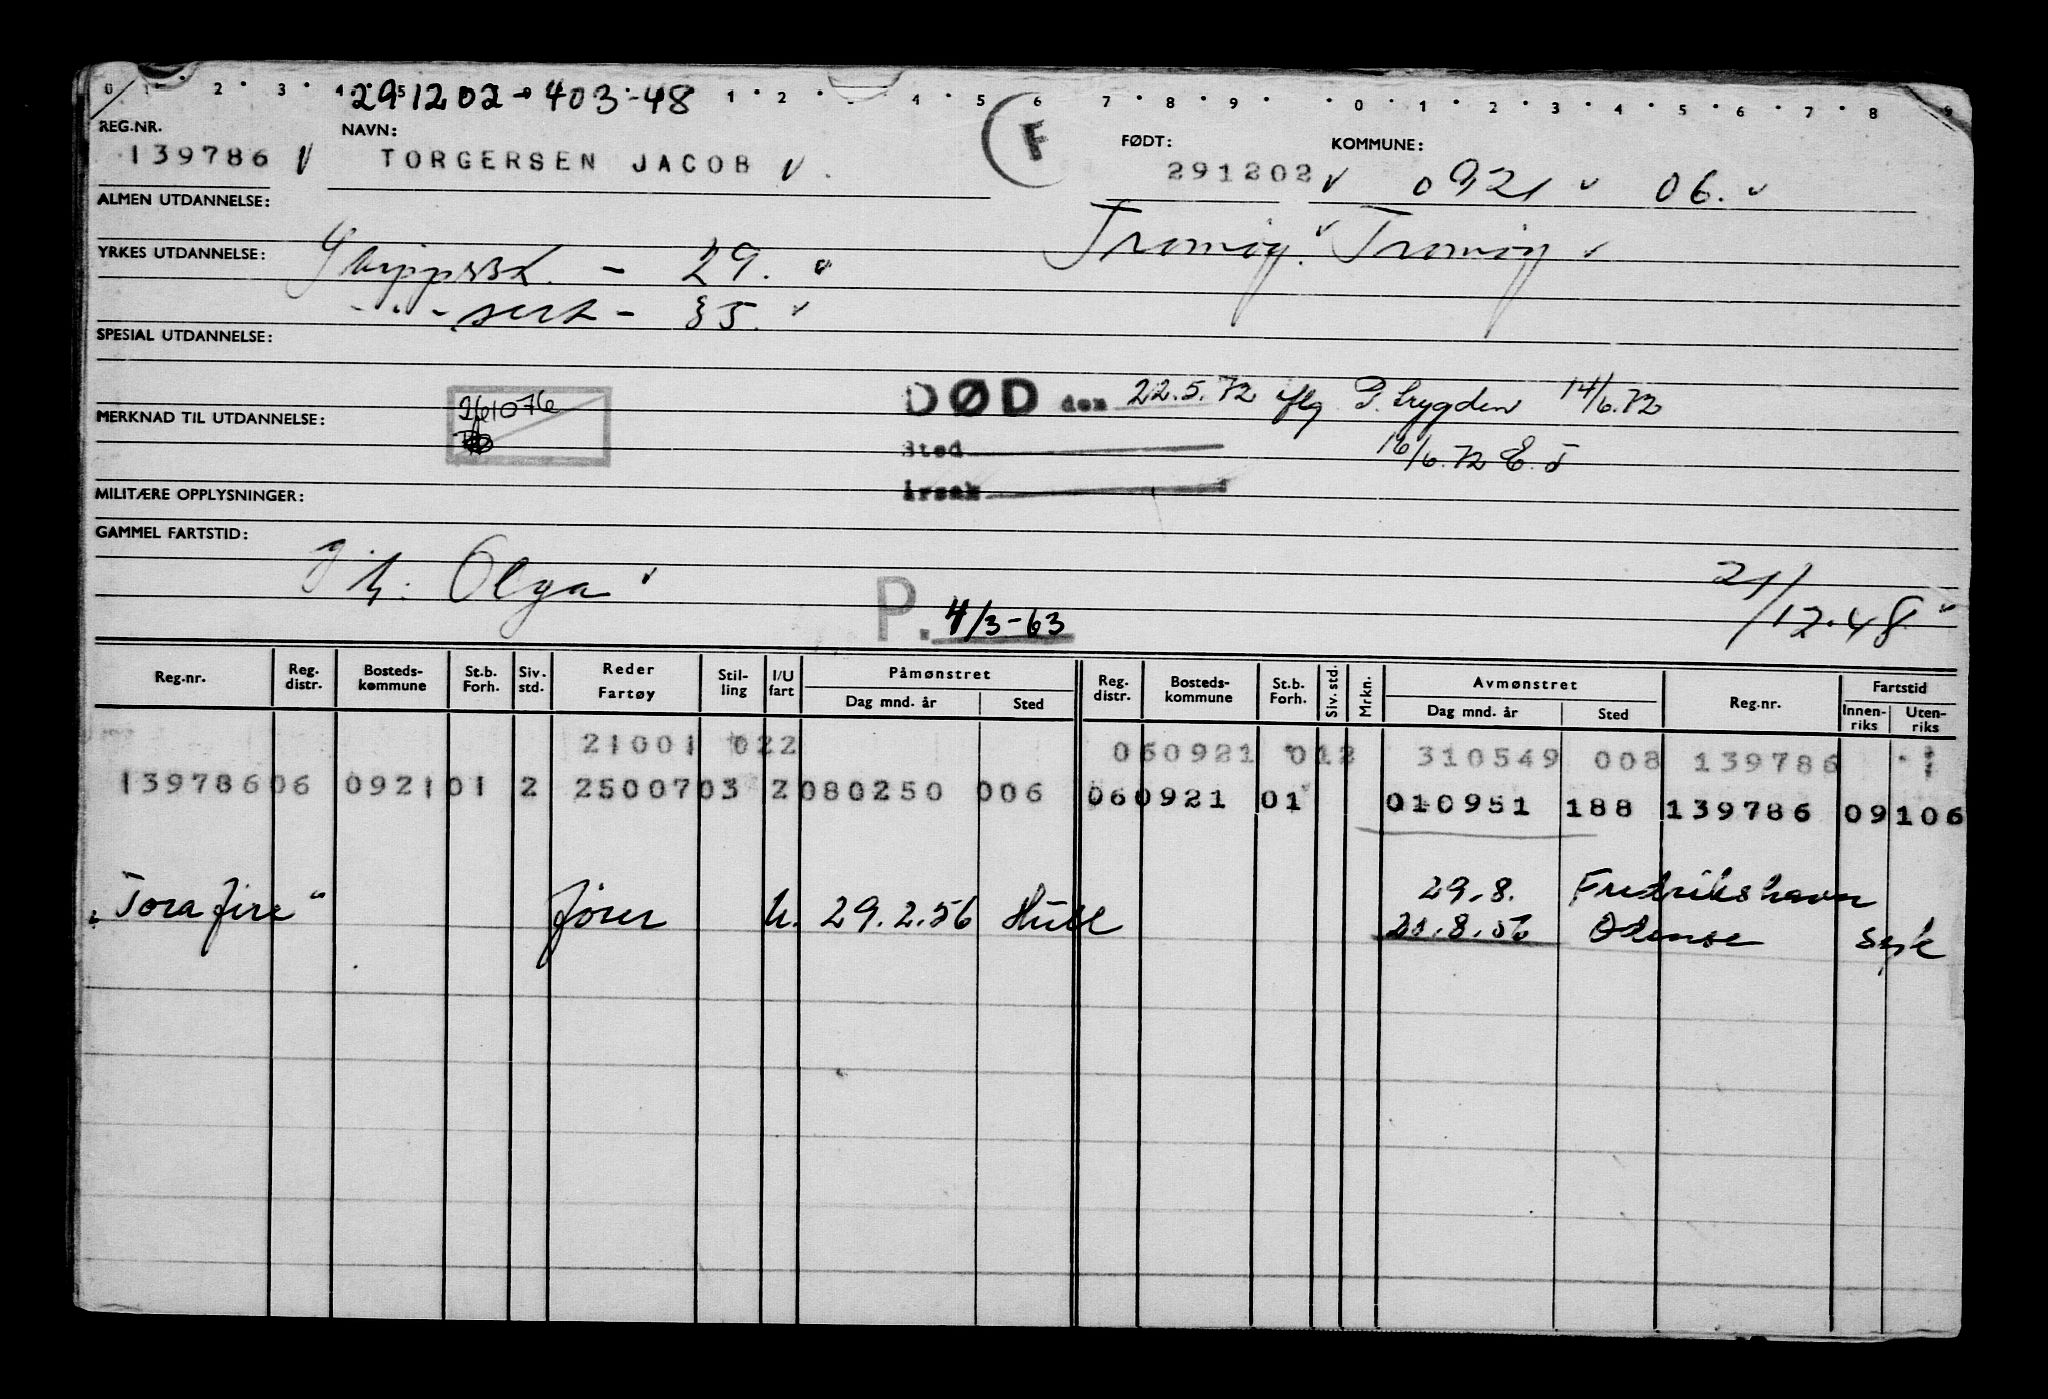 0 1 2 3 4 5 1 2 4 5 6 7 8 9 0 1 2 3 4 5 6 7 8 9
291202 - 403-48
REG.NR. NAVN: F FØDT: KOMMUNE:
139786 TORGERSEN JACOB 291202 0921 06.
ALMEN UTDANNELSE: Tromøy. Tromøy
YRKES UTDANNELSE: - 29.
-"- sert - 35.
SPESIAL UTDANNELSE:
261076 DØD den 22.5.72 iflg P. Trygden 14/6.72
MERKNAD TIL UTDANNELSE:
Sted 16/6.72 E.T
MILITÆRE OPPLYSNINGER: årsak
GAMMEL FARTSTID:
Olga 21/12.48
P. 4/3-63
Reg.nr. Reg. distr. Bosteds-kommune St.b. Forh. Siv. std. Reder Fartøy Stil-ling I/U fart Påmønstret Dag mnd. år Sted Reg. distr. Bosteds-kommune St.b. Forh. Siv. std. Mrkn. Avmønstret Dag mnd. år Sted Reg.nr. Fartstid Innen-riks Uten-riks
21001 022 060921 012 310549 008 139786
139786 06 0921 01 2 25007 03 2 080250 006 06 0921 01 010951 188 139786 09 106
29.8. Fredrikshavn
"Tora fire" fører U. 29.2.56 Hull 21.8.56 Odense syk